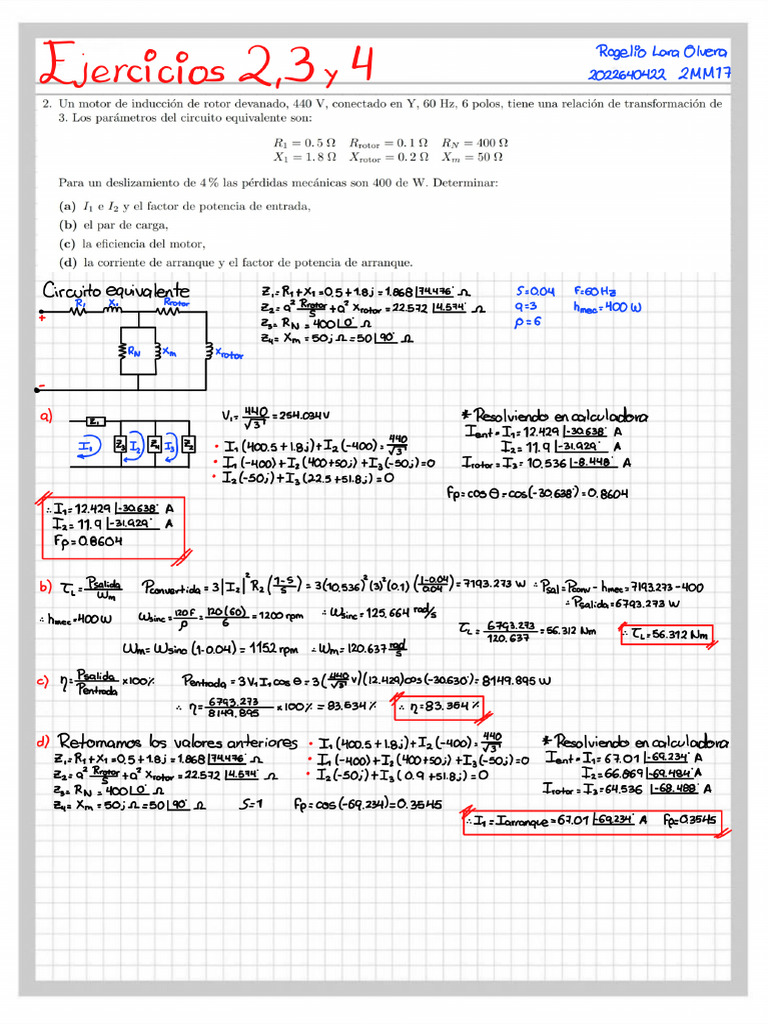 Ejercicios 2,3 y 4
Rogelio Lara Olvera
2022640422 2MM17
2. Un motor de inducción de rotor devanado, 440 V, conectado en Y, 60 Hz, 6 polos, tiene una relación de transformación de
3. Los parámetros del circuito equivalente son:
R1 = 0.5 Ω Rrotor = 0.1 Ω RN = 400 Ω
X1 = 1.8 Ω Xrotor = 0.2 Ω Xm = 50 Ω
Para un deslizamiento de 4 % las pérdidas mecánicas son 400 de W. Determinar:
(a) I1 e I2 y el factor de potencia de entrada,
(b) el par de carga,
(c) la eficiencia del motor,
(d) la corriente de arranque y el factor de potencia de arranque.
Circuito equivalente
R1 X1 Rrotor
+
RN Xm Xrotor
-
Z1=R1+X1=0.5+1.8j=1.868|74.476° Ω
Z2=a² Rrotor/S +a² Xrotor=22.572 |4.574° Ω
Z3=RN=400|0° Ω
Z4=Xm=50j Ω=50|90° Ω
S=0.04 F=60Hz
a=3 hmec=400 W
p=6
a)
Z1
I1 Z3 I2 Z4 I3 Z2
V1=440/√3=254.034V
• I1(400.5+1.8j)+I2(-400)=440/√3
• I1(-400)+I2(400+50j)+I3(-50j)=0
• I2(-50j)+I3(22.5+51.8j)=0
* Resolviendo en calculadora
Ient=I1=12.429|-30.638° A
I2=11.9|-31.929° A
Irotor=I3=10.536|-8.448° A
Fp=cos θ=cos(-30.638°)=0.8604
∴ I1=12.429|-30.638° A
I2=11.9|-31.929° A
Fp=0.8604
b) τL=Psalida/Wm Pconvertida=3|I2|²R2(1-S/S)=3(10.536)²(3)²(0.1)(1-0.04/0.04)=7193.273 W ∴Psal=Pconv-hmec=7193.273-400
∴Psalida=6793.273 W
∴ hmec=400 W Wsinc=120F/p=120(60)/6=1200 rpm ∴Wsinc=125.664 rad/s
τL=6793.273/120.637=56.312 Nm ∴τL=56.312 Nm
Wm=Wsinc(1-0.04)=1152 rpm ∴Wm=120.637 rad/s
c) η=Psalida/Pentrada ×100% Pentrada=3V1I1cos θ=3(440/√3 V)(12.429)cos(-30.630°)=8149.895 W
∴ η=6793.273/8149.895 ×100%=83.534% ∴ η=83.354%
d) Retomamos los valores anteriores
Z1=R1+X1=0.5+1.8j=1.868|74.476° Ω
Z2=a² Rrotor/S+a² Xrotor=22.572|4.574° Ω
Z3=RN=400|0° Ω
Z4=Xm=50j Ω=50|90° Ω S=1
• I1(400.5+1.8j)+I2(-400)=440/√3
• I1(-400)+I2(400+50j)+I3(-50j)=0
• I2(-50j)+I3(0.9+51.8j)=0
Fp=cos(-69.234)=0.3545
* Resolviendo en calculadora
Ient=I1=67.01|-69.234° A
I2=66.869|-69.484° A
Irotor=I3=64.536|-68.488° A
∴ I1=Iarranque=67.01|-69.234° A Fp=0.3545